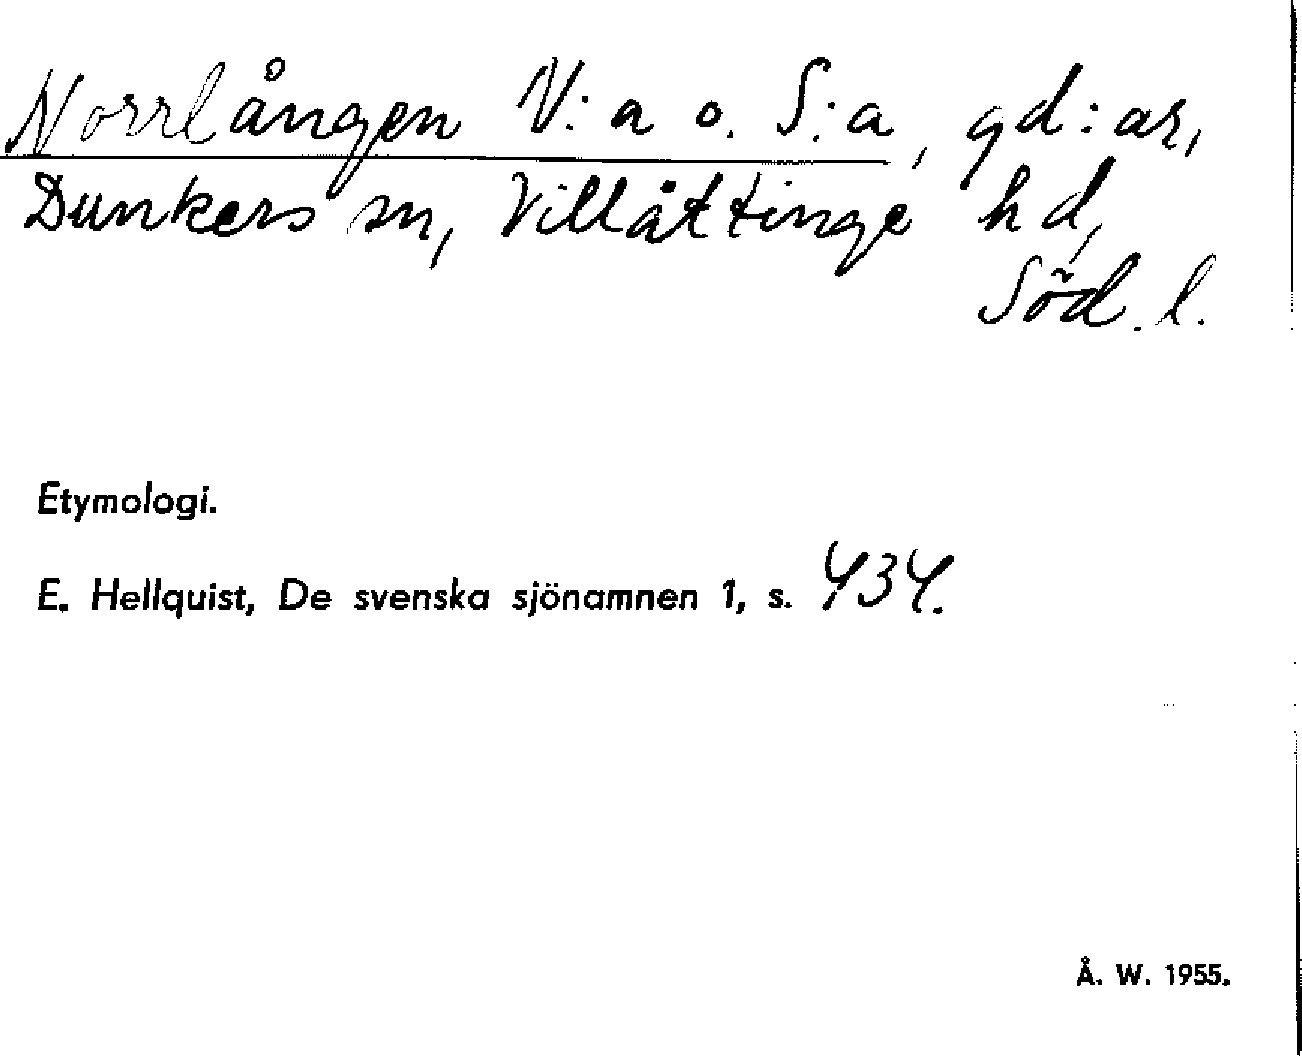 Norrlången N:a o. S:a, gd:ar,
Dunkers sn, Villåttinge hd,
Söd. l.
Etymologi.
E. Hellquist, De svenska sjönamnen 1, s. 434.
Å. W. 1955.